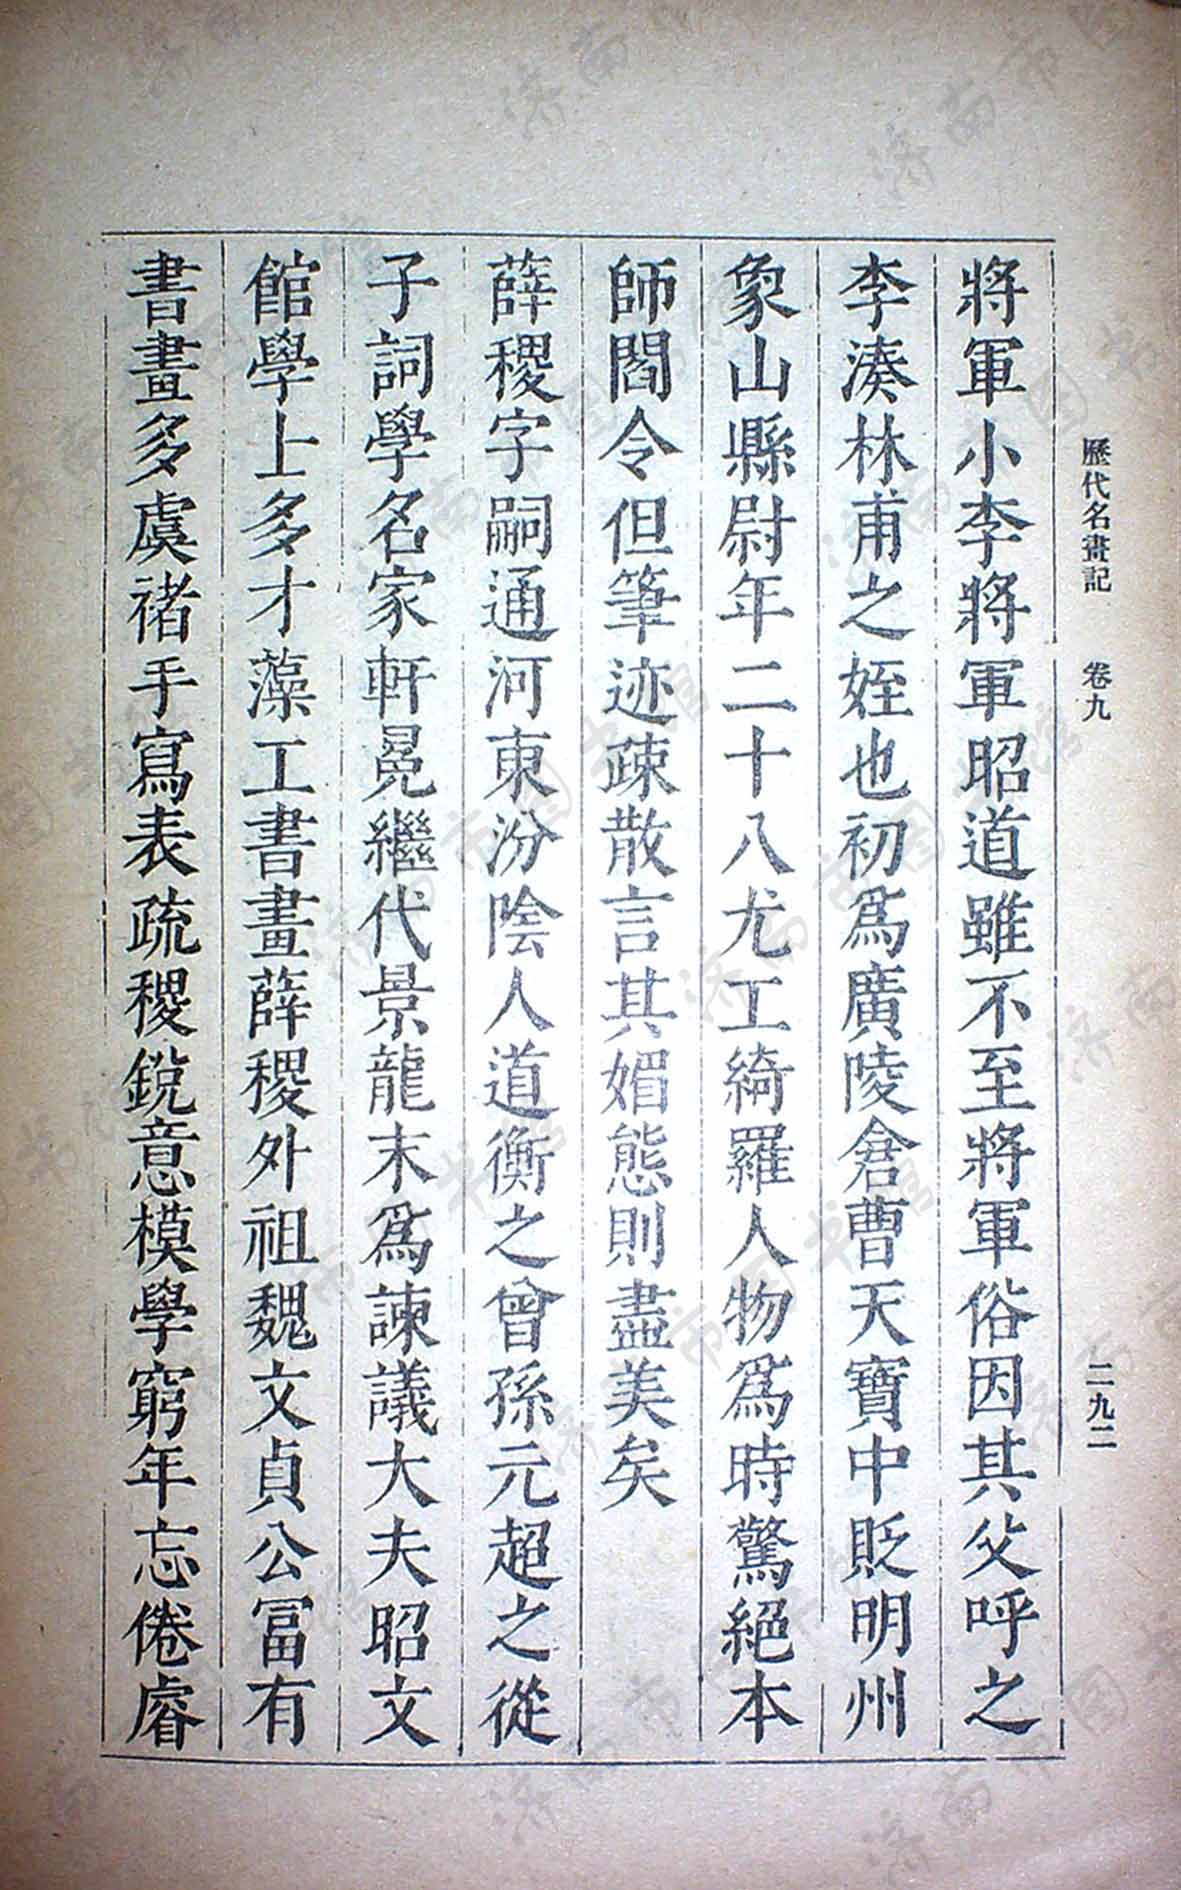 歷代名畫記 卷九 二九二
將軍小李將軍昭道雖不至將軍俗因其父呼之
李湊林甫之姪也初爲廣陵倉曹天寶中貶明州
象山縣尉年二十八尤工綺羅人物爲時驚絕本
師閻令但筆迹疎散言其媚態則盡美矣
薛稷字嗣通河東汾陰人道衡之曾孫元超之從
子詞學名家軒冕繼代景龍末爲諫議大夫昭文
館學士多才藻工書畫薛稷外祖魏文貞公冨有
書畫多虞褚手寫表疏稷銳意模學窮年忘倦睿
濟南市图书馆